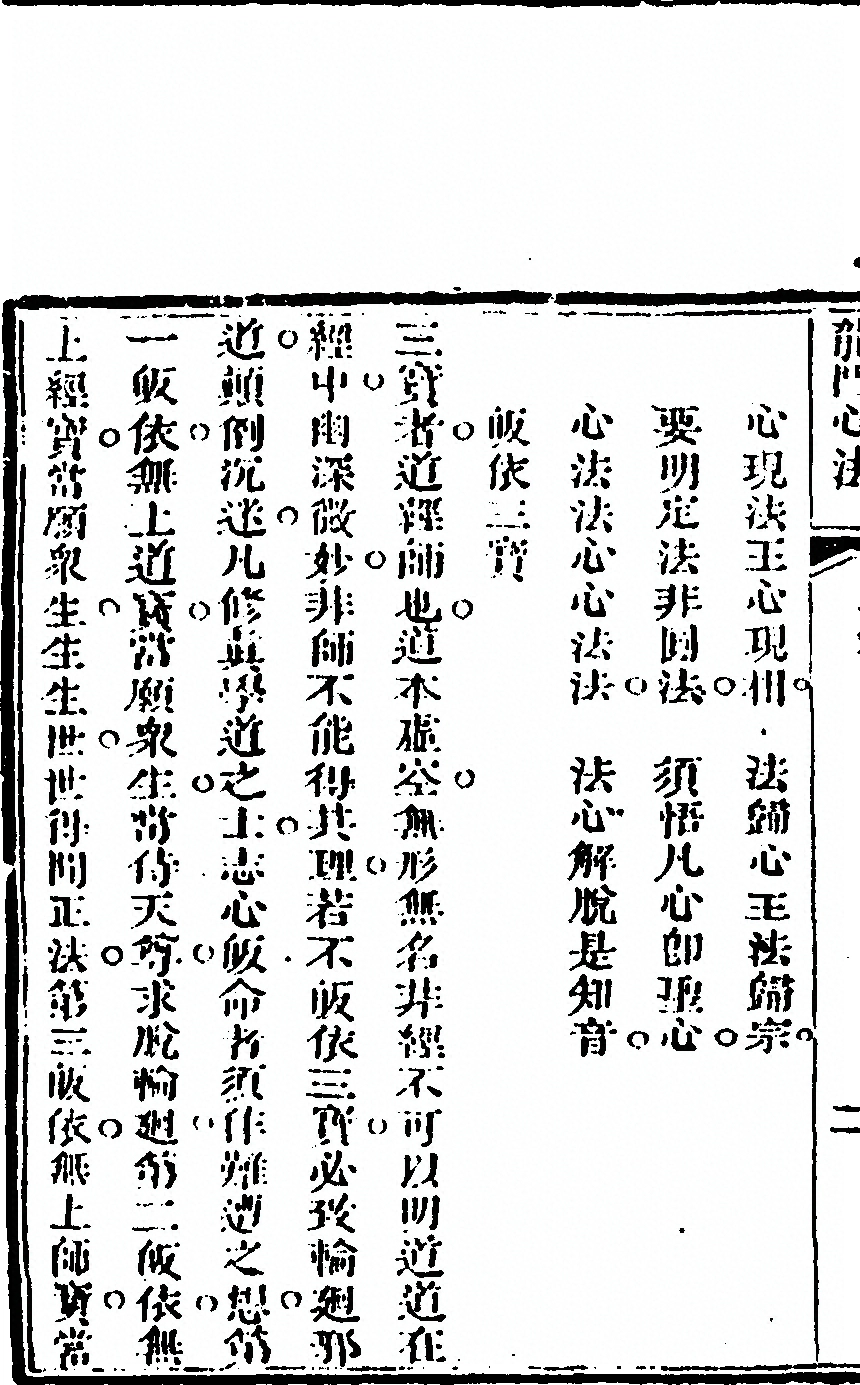 龍門心法
二
心現法王心現相　法歸心王法歸宗
要明定法非圓法　須悟凡心卽聖心
心法法心心法法　法心解脫是知音
皈依三寶
三寶者道經師也道本虛空無形無名非經不可以明道道在
經中幽深微妙非師不能得其理若不皈依三寶必致輪迴邪
道顛倒沉迷凡修眞學道之士志心皈命者須作難遭之想第
一皈依無上道寶當願衆生常侍天尊求脫輪廻第二皈依無
上經寶當願衆生生生世世得聞正法第三皈依無上師寶當